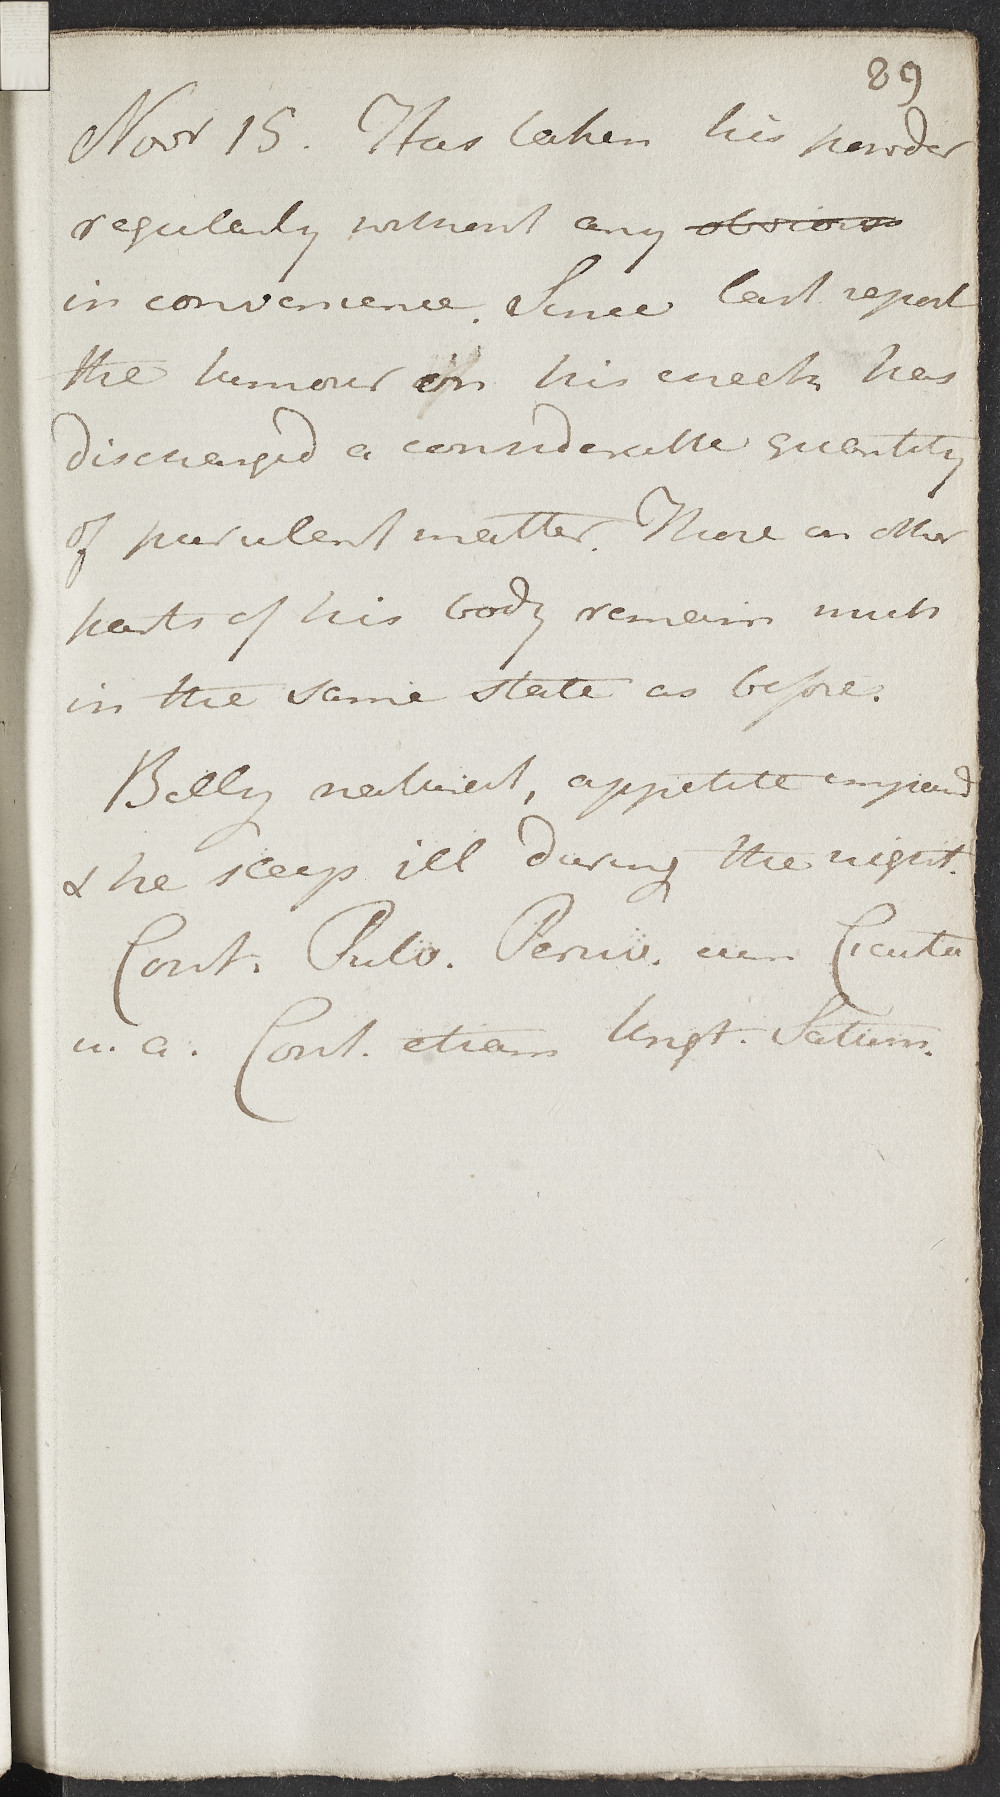 89
Novr 15. Has taken his powder
regularly without any obvious
in convenience. Since last report
the tumour on his cheek has
discharged a considerable quantity
of purulent matter. Those on other
parts of his body remain much
in the same state as before.
Belly natural, appetite impaird
& he sleeps ill during the night.
Cont. Pulv. Peruv. cum Cicuta
u. a. Cont. etiam Ungt. Saturn.